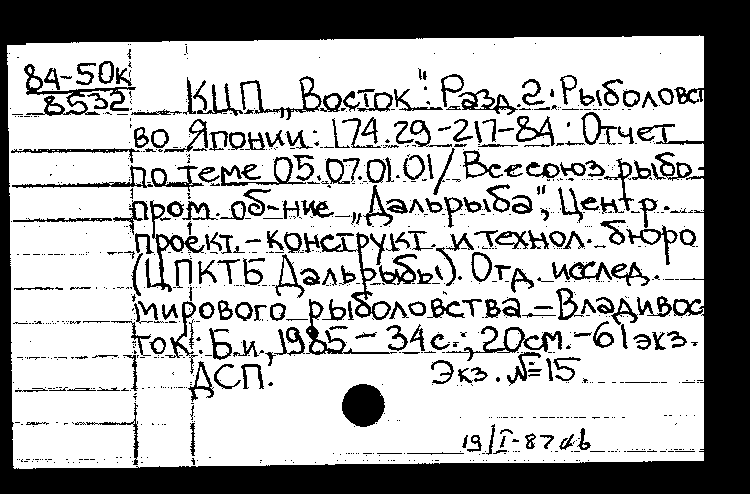 84-50к
8532
КЦП „Восток": Разд. 2: Рыболовст
во Японии: 174.29-217-84: Отчет
по теме 05.07.01.01/ Всесоюз. рыбо-
пром. об-ние „Дальрыба", Центр.
проект.-конструкт. и технол. бюро
(ЦПКТБ Дальрыбы). Отд. исслед.
мирового рыболовства.-Владивос
ток: Б.и., 1985.-34с.; 20см.-61экз.
ДСП. Экз. №15.
19/I-87